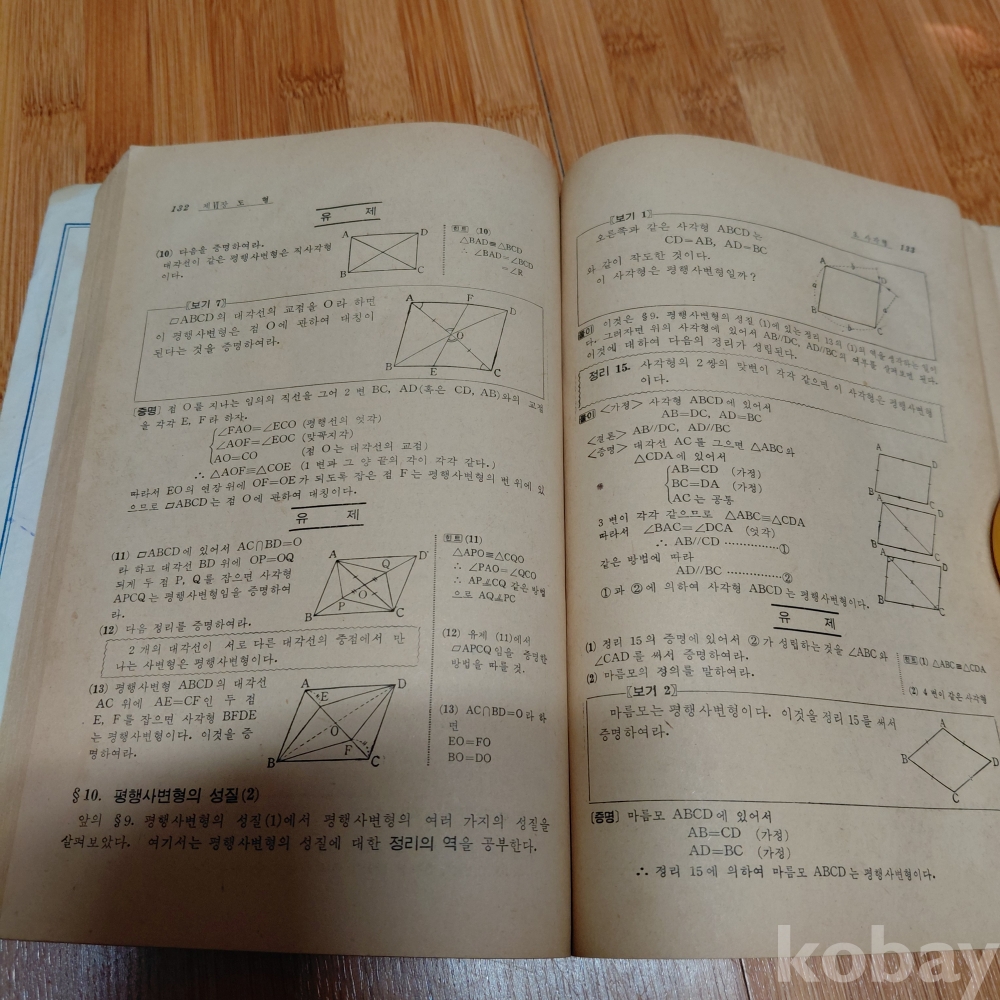 132 제Ⅱ장 도 형
유 제
(10) 다음을 증명하여라.
대각선이 같은 평행사변형은 직사각형
이다.
A D
B C
힌트 (10)
△BAD≡△BCD
∴ ∠BAD=∠BCD
=∠R
〖보기 7〗
▱ABCD의 대각선의 교점을 O라 하면
이 평행사변형은 점 O에 관하여 대칭이
된다는 것을 증명하여라.
A F D
O
B E C
[증명] 점 O를 지나는 임의의 직선을 그어 2 변 BC, AD(혹은 CD, AB)와의 교점
을 각각 E, F라 하자.
∠FAO=∠ECO (평행선의 엇각)
∠AOF=∠EOC (맞꼭지각)
AO=CO (점 O는 대각선의 교점)
∴ △AOF≡△COE (1 변과 그 양 끝의 각이 각각 같다.)
따라서 EO의 연장 위에 OF=OE가 되도록 잡은 점 F는 평행사변형의 변 위에 있
으므로 ▱ABCD는 점 O에 관하여 대칭이다.
유 제
(11) ▱ABCD에 있어서 AC∩BD=O
라 하고 대각선 BD 위에 OP=OQ
되게 두 점 P, Q를 잡으면 사각형
APCQ는 평행사변형임을 증명하여
라.
A D
Q
O
P
B C
힌트 (11)
△APO≡△CQO
∴ ∠PAO=∠QCO
∴ AP⫽CQ 같은 방법
으로 AQ⫽PC
(12) 다음 정리를 증명하여라.
2 개의 대각선이 서로 다른 대각선의 중점에서 만
나는 사변형은 평행사변형이다.
(12) 유제 (11)에서
▱APCQ임을 증명한
방법을 따를 것.
(13) 평행사변형 ABCD의 대각선
AC 위에 AE=CF인 두 점
E, F를 잡으면 사각형 BFDE
는 평행사변형이다. 이것을 증
명하여라.
A D
E
O
F
B C
(13) AC∩BD=O라 하
면
EO=FO
BO=DO
§10. 평행사변형의 성질(2)
앞의 §9. 평행사변형의 성질(1)에서 평행사변형의 여러 가지의 성질을
살펴보았다. 여기서는 평행사변형의 성질에 대한 정리의 역을 공부한다.
사각형 133
〖보기 1〗
오른쪽과 같은 사각형 ABCD는
CD=AB, AD=BC
와 같이 작도한 것이다.
이 사각형은 평행사변형일까?
A b D
a
B b C
풀이 이것은 §9. 평행사변형의 성질 (1)에 있는 정리 13의 (1)의 역을
다. 그러자면 위의 사각형에 있어서 AB//DC, AD//BC의 여부를 살펴보면 된다.
이것에 대하여 다음의 정리가 성립된다.
정리 15. 사각형의 2 쌍의 맞변이 각각 같으면 이 사각형은 평행사변형
이다.
풀이 <가정> 사각형 ABCD에 있어서
AB=DC, AD=BC
<결론> AB//DC, AD//BC
<증명> 대각선 AC를 그으면 △ABC와
△CDA에 있어서
AB=CD (가정)
BC=DA (가정)
AC는 공통
3 변이 각각 같으므로 △ABC≡△CDA
따라서 ∠BAC=∠DCA (엇각)
∴ AB//CD ……………①
같은 방법에 따라
AD//BC ……………②
①과 ②에 의하여 사각형 ABCD는 평행사변형이다.
A D
B C
A D
B C
A D
B C
유 제
(1) 정리 15의 증명에 있어서 ②가 성립하는 것을 ∠ABC와
∠CAD를 써서 증명하여라.
(2) 마름모의 정의를 말하여라.
힌트 (1) △ABC≡△CDA
(2) 4 변이 같은 사각형
〖보기 2〗
마름모는 평행사변형이다. 이것을 정리 15를 써서
증명하여라.
A
B D
C
[증명] 마름모 ABCD에 있어서
AB=CD (가정)
AD=BC (가정)
∴ 정리 15에 의하여 마름모 ABCD는 평행사변형이다.
kobay